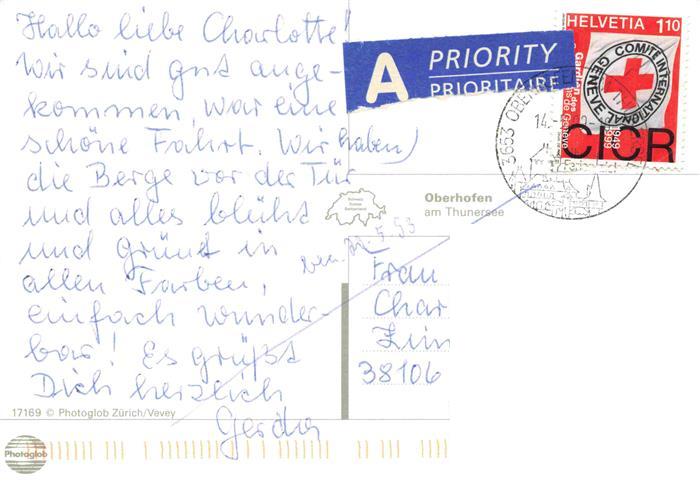 Hallo liebe Charlotte!
Wir sind gut ange-
kommen, war eine
schöne Fahrt. Wir haben
die Berge vor der Tür
und alles blüht
und grünt in
allen Farben,
einfach wunder-
bar! Es grüßt
Dich herzlich
Gerda
17169 © Photoglob Zürich/Vevey
Photoglob
A PRIORITY
PRIORITAIRE
HELVETIA 110
COMITE INTERNATIONAL GENEVE
Gardien des
de Genève
1949
1999
CICR
3653
14.
Schweiz
Suisse
Svizzera
Switzerland
Oberhofen
am Thunersee
Frau
Char
Zim
38106